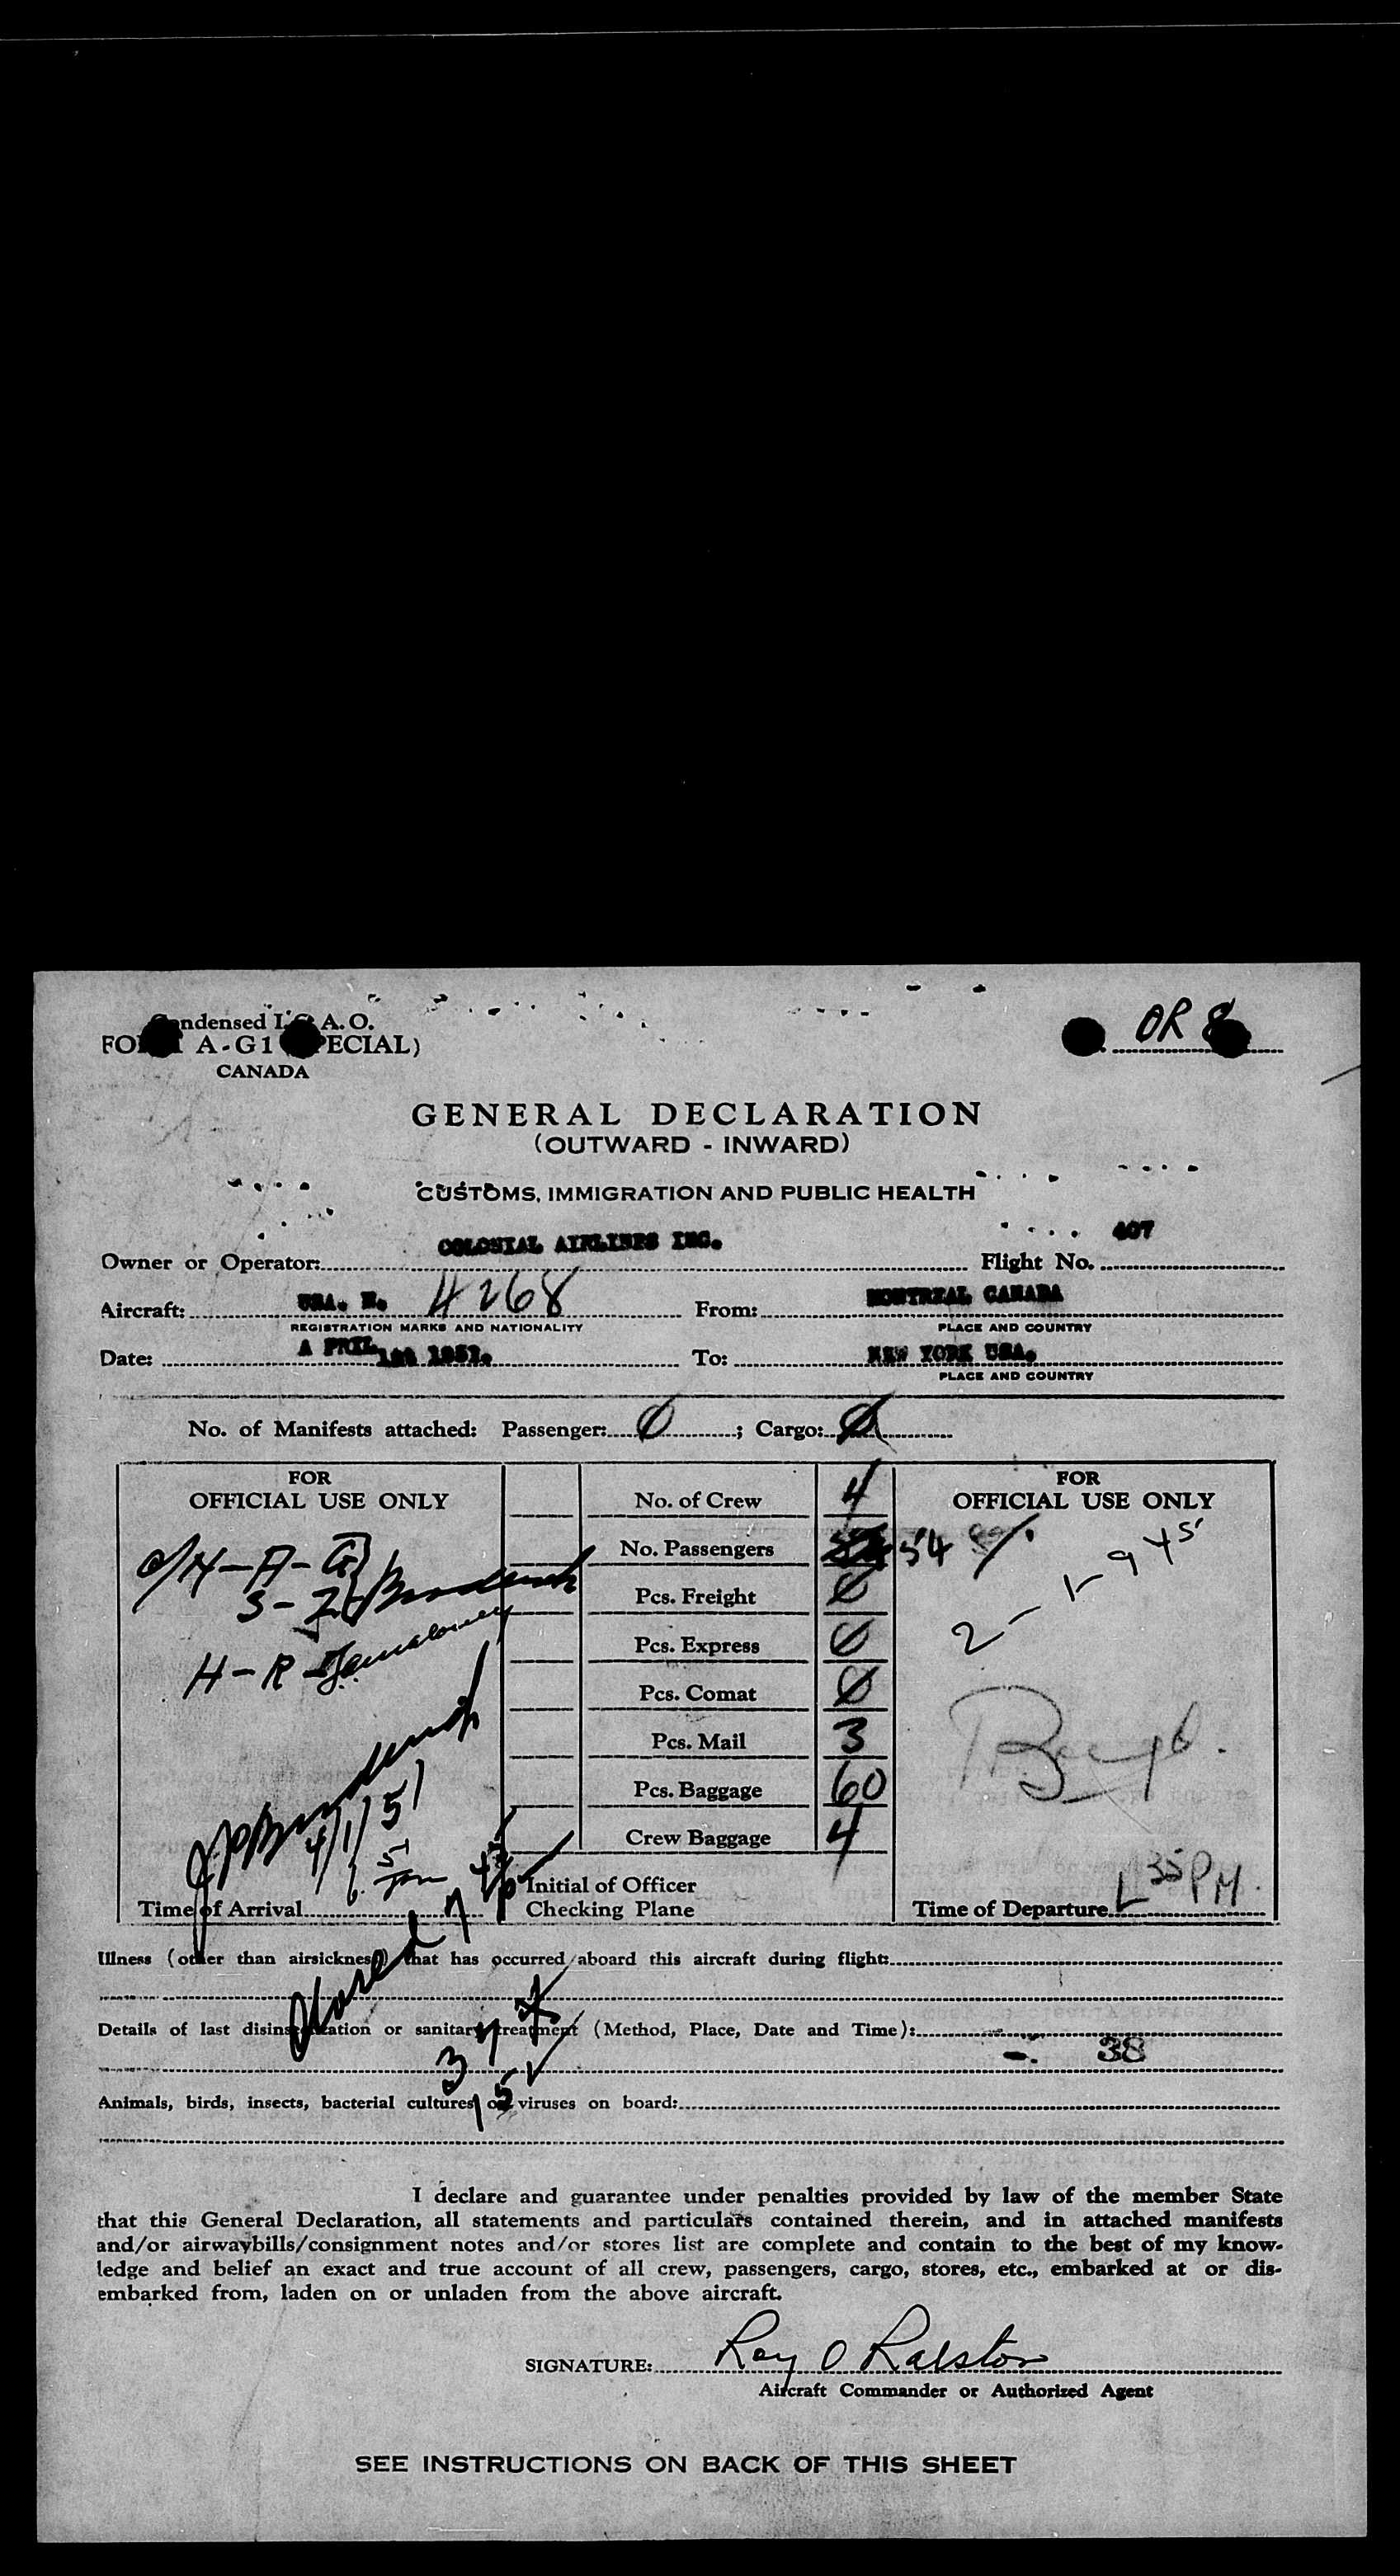 Condensed I.C.A.O.
FORM A-G1 (SPECIAL)
CANADA
OR 8
GENERAL DECLARATION
(OUTWARD - INWARD)
CUSTOMS, IMMIGRATION AND PUBLIC HEALTH
Owner or Operator: COLONIAL AIRLINES INC. Flight No. 407
Aircraft: USA. N. 4268 From: MONTREAL CANADA
REGISTRATION MARKS AND NATIONALITY PLACE AND COUNTRY
Date: A PRIL 1st 1951. To: NEW YORK USA.
PLACE AND COUNTRY
No. of Manifests attached: Passenger: 0 ; Cargo: 0
FOR
OFFICIAL USE ONLY
H-A-G
S-
H-R-
4/1/51
Time of Arrival
No. of Crew 4
No. Passengers 54
Pcs. Freight 0
Pcs. Express 0
Pcs. Comat 0
Pcs. Mail 3
Pcs. Baggage 60
Crew Baggage 4
Initial of Officer
Checking Plane
FOR
OFFICIAL USE ONLY
2-1-945
Time of Departure 35 PM.
Illness (other than airsickness) that has occurred aboard this aircraft during flight:
Details of last disinsectization or sanitary treatment (Method, Place, Date and Time):
38
Animals, birds, insects, bacterial cultures or viruses on board:
I declare and guarantee under penalties provided by law of the member State
that this General Declaration, all statements and particulars contained therein, and in attached manifests
and/or airwaybills/consignment notes and/or stores list are complete and contain to the best of my know-
ledge and belief an exact and true account of all crew, passengers, cargo, stores, etc., embarked at or dis-
embarked from, laden on or unladen from the above aircraft.
SIGNATURE: Roy O Ralston
Aircraft Commander or Authorized Agent
SEE INSTRUCTIONS ON BACK OF THIS SHEET